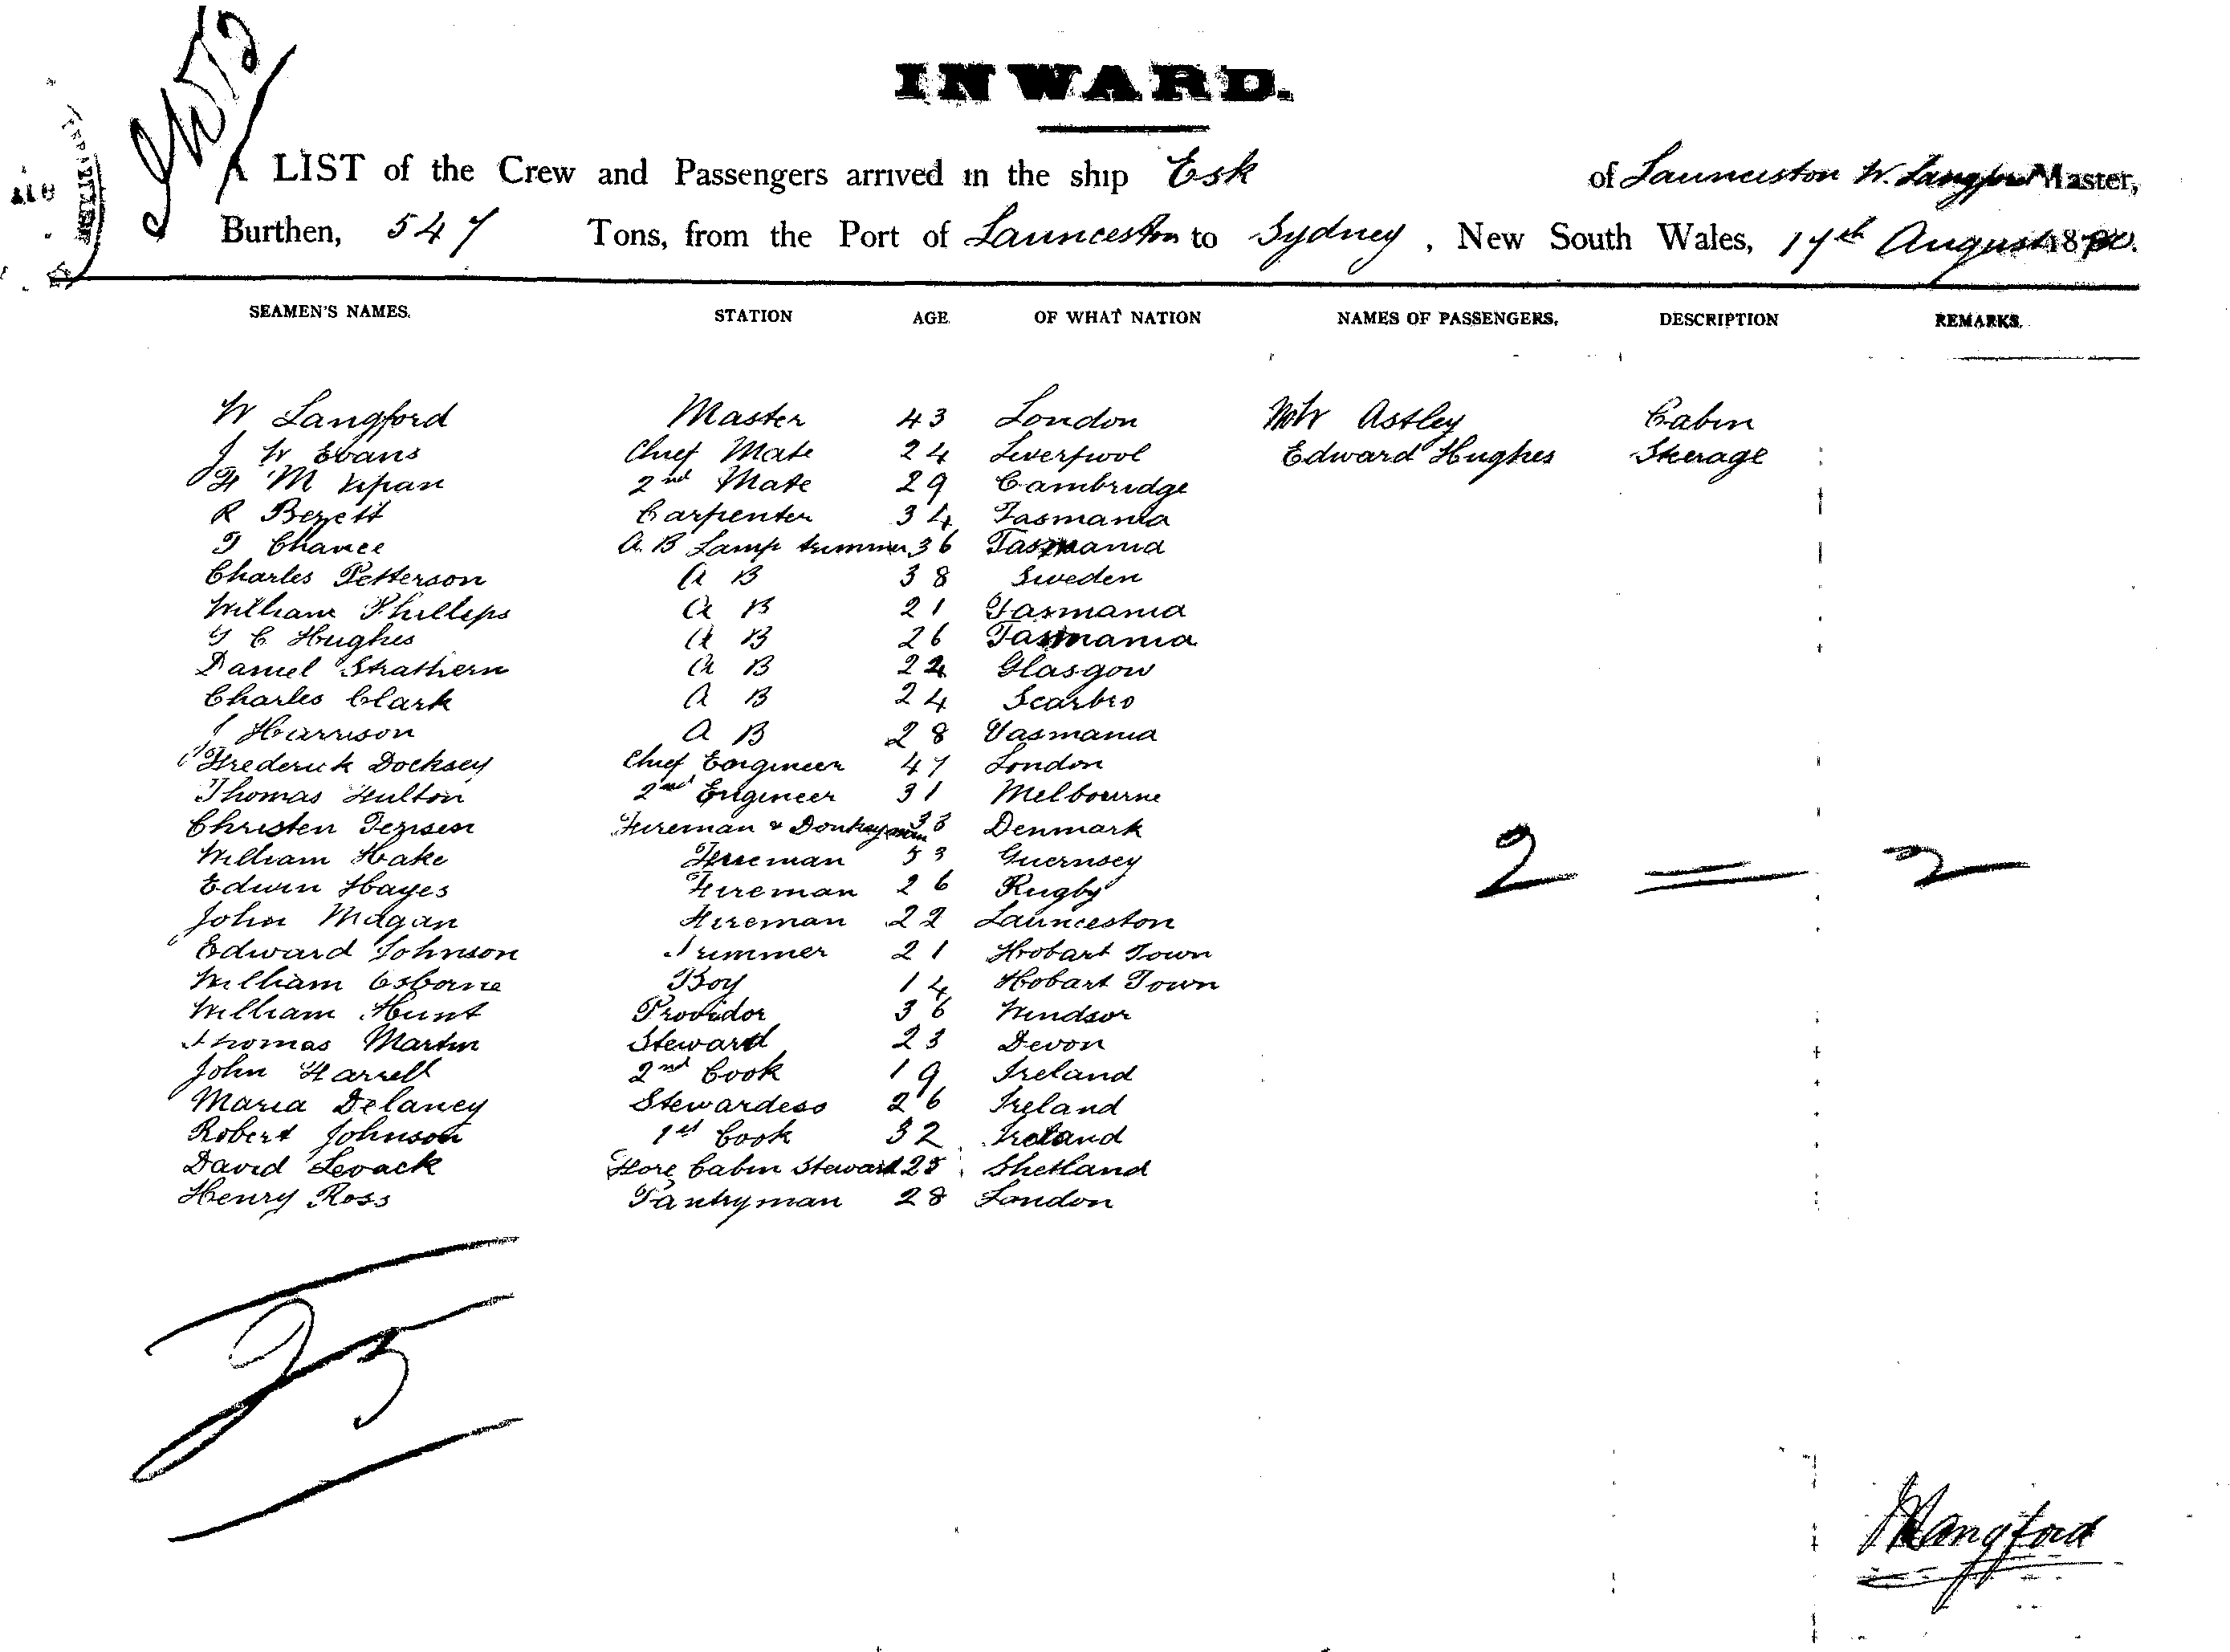 INWARD.
A LIST of the Crew and Passengers arrived in the ship Esk of Launceston W. Langford Master,
Burthen, 547 Tons, from the Port of Launceston to Sydney, New South Wales, 17th August 1880.
SEAMEN'S NAMES. STATION AGE OF WHAT NATION NAMES OF PASSENGERS. DESCRIPTION REMARKS.
W Langford Master 43 London Astley Cabin
J W Evans Chief Mate 24 Liverpool Edward Hughes Steerage
F M 2nd Mate 29 Cambridge
R Bezett Carpenter 34 Tasmania
T Chance A. B Lamp trimmer 36 Tasmania
Charles Petterson A B 38 Sweden
William Phillips A B 21 Tasmania
C Hughes A B 26 Tasmania
Daniel Strathern A B 22 Glasgow
Charles Clark A B 24 Scarbro
J Harrison A B 28 Tasmania
Frederick Docksey Chief Engineer 47 London
Thomas Hulton 2nd Engineer 31 Melbourne
Christen Jensen Fireman & Donkeyman 33 Denmark
William Hake Fireman 53 Guernsey
Edwin Hayes Fireman 26 Rugby
2 = 2
John Magan Fireman 22 Launceston
Edward Johnson Trimmer 21 Hobart Town
William Osborne Boy 14 Hobart Town
William Hunt Providor 36 Windsor
Thomas Martin Steward 23 Devon
John Farrell 2nd Cook 19 Ireland
Maria Delaney Stewardess 26 Ireland
Robert Johnson 1st Cook 32 Ireland
David Levack Fore Cabin Steward 25 Shetland
Henry Ross Pantryman 28 London
25
W Langford